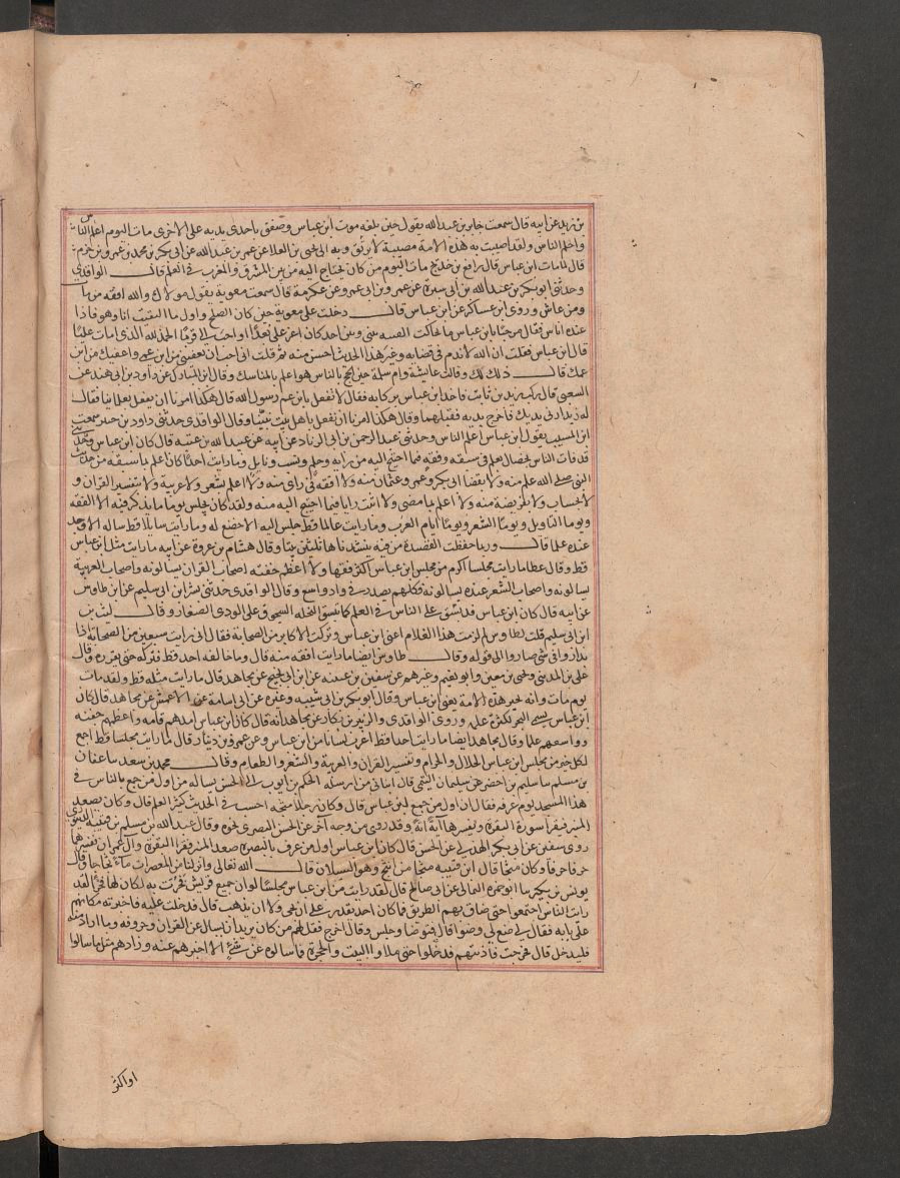 بن زيد عن ابيه قال سمعت جابر بن عبد الله يقول حين بلغه موت ابن عباس وصفق باحدى يديه على الاخرى مات اليوم اعلم الناس
واحلم الناس ولقد اصيبت به هذه الامة مصيبة لا ترتق وبه الى يحيى بن العلا عن عمر بن عبد الله عن ابى بكر بن محمد بن عمرو بن حزم
قال لما مات ابن عباس قال رافع بن خديج مات اليوم من كان يحتاج اليه من بين المشرق والمغرب فى العلم قال الواقدي
وحدثنى ابو بكر بن عبد الله بن ابى سبرة عن عمرو بن ابى عمرو عن عكرمة قال سمعت معوية يقول مولاك والله افقه من مات
ومن عاش وروى ابن عساكر عن ابن عباس قال دخلت على معوية حين كان الصلح واول ما التقيت انا وهو فاذا
عنده اناس فقال مرحبا بابن عباس ما تحاكت الفتنة بينى وبين احد كان اعز على بعدا ولا احب الى قربا الحمد لله الذى امات عليا
قال ابن عباس فقلت ان الله لا يذم فى قضايه وغير هذا الحديث احسن منه ثم قلت له احب ان تعفينى من ابن عمى واعفيك من ابن
عمك قال ذلك لك وقالت عايشة وام سلمة حين حج بالناس هو اعلم بالمناسك وقال ابن المبارك عن داود بن ابى هند عن
الشعبى قال ركب زيد بن ثابت فاخذ ابن عباس بركابه فقال لا تفعل يا بن عم رسول الله قال هكذا امرنا ان نفعل بعلماينا فقال
له زيد ارنى يديك فاخرج يديه فقبلهما وقال هكذا امرنا ان نفعل باهل بيت نبينا وقال الواقدى حدثنى داود بن سمعت
ابن المسيب يقول ابن عباس اعلم الناس وحدثنى عبد الرحمن بن ابى الزناد عن ابيه عن عبيد الله بن عتبة قال كان ابن عباس
قد فات الناس بخصال بعلم ما سبقه وفقه فيما احتيج اليه من رايه وحلم ونسب ونايل وما رايت احدا كان اعلم بما سبقه من حديث
النبى صلى الله عليه منه ولا بقضا ابى بكر وعمر وعثمان منه ولا افقه فى راى منه ولا اعلم بشعر ولا عربية ولا بتفسير القران و
لا بحساب ولا بفريضة منه ولا اعلم بما مضى ولا اثبت رايا فيما احتيج اليه منه ولقد كان يجلس يوما ما يذكر فيه الا الفقه
ويوما التاويل ويوما الشعر ويوما ايام العرب وما رايت عالما قط جلس اليه الا خضع له وما رايت سايلا قط ساله الا وجد
عنده علما قال وربما حفظت القصيدة من فيه ينشدنا ها ثلثين بيتا وقال هشام بن عروة عن ابيه ما رايت مثل ابن عباس
قط وقال عطا ما رايت مجلسا اكرم من مجلس ابن عباس اكثر فقها ولا اعظم جفنة اصحاب القران يسالونه واصحاب العربية
يسالونه واصحاب الشعر عنده يسالونه فكلهم يصدر فى واد واسع وقال الواقدى حدثنى بشر بن ابى سليم عن ابن طاوس
عن ابيه قال كان ابن عباس قد بسق على الناس فى العلم كما تبسق النخلة السحوق على الودى الصغار وقال ليث بن
ابى سليم قلت لطاوس لم لزمت هذا الغلام اعنى ابن عباس وتركت الاكابر من الصحابة فقال انى رايت سبعين من الصحابة اذا
تداروا فى شى صاروا الى قوله وقال طاوس ايضا ما رايت افقه منه قال وما خالفه احد قط فتركه حتى يقرره وقال
على بن المدينى ويحيى بن معين وابو نعيم وغيرهم عن سفين بن عيينة عن ابن ابى نجيح عن مجاهد قال ما رايت مثله قط ولقد مات
يوم مات وانه لحبر هذه الامة يعنى ابن عباس وقال ابو بكر بن ابى شيبة وغيره عن ابى اسامة عن الاعمش عن مجاهد قال كان
ابن عباس يسمى البحر لكثرة علمه وروى الواقدى والزبير بن بكار عن مجاهد انه قال كان ابن عباس امدهم قامة واعظمهم جفنة
واوسعهم علما وقال مجاهد ايضا ما رايت احدا قط اعرب لسانا من ابن عباس وعن عمرو بن دينار قال ما رايت مجلسا قط اجمع
لكل خير من مجلس ابن عباس الحلال والحرام وتفسير القران والعربية والشعر والطعام وقال محمد بن سعد ثنا عفان
بن مسلم ثنا سليم بن اخضر عن سليمان التيمى قال انبانى من ارسله الحكم بن ايوب الى الحسن يساله من اول من جمع بالناس فى
هذا المسجد يوم عرفة فقال ان اول من جمع لابن عباس قال وكان رجلا مثجه احسب فى الحديث كثير العلم قال وكان يصعد
المنبر فيقرا سورة البقرة ويفسرها آية آية وقد روى من وجه آخر عن الحسن البصرى نحوه وقال عبد الله بن مسلم بن قتيبة الدينورى
روى سفين عن ابى بكر الهذلى عن الحسن قال كان ابن عباس اول من عرف بالبصرة صعد المنبر فقرا البقرة وآل عمران ففسرهما
حرفا حرفا وكان مثجا قال ابن قتيبة مثجا من الثج وهو السيلان قال الله تعالى وانزلنا من المعصرات ماء ثجاجا وقال
يونس بن بكير ثنا ابو حمزة الثمالى عن ابى صالح قال لقد رايت من ابن عباس مجلسا لو ان جميع قريش فخرت به لكان لها فخرا لقد
رايت الناس اجتمعوا حتى ضاق بهم الطريق فما كان احد يقدر على ان يجى ولا ان يذهب قال فدخلت عليه فاخبرته مكانهم
على بابه فقال لى ضع لى وضوا قال فتوضا وجلس وقال اخرج فقل لهم من كان يريد ان يسال عن القران وحروفه وما اراد منه
فليدخل قال فخرجت فاذنتهم فدخلوا حتى ملاوا البيت والحجرة فما سالوه عن شئ الا اخبرهم عنه وزادهم مثل ما سالوا
او اكثر